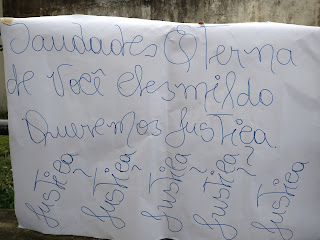 Saudades Eterna
de você Cresmildo
Queremos Justiça.
Justiça Justiça Justiça Justiça? Justiça